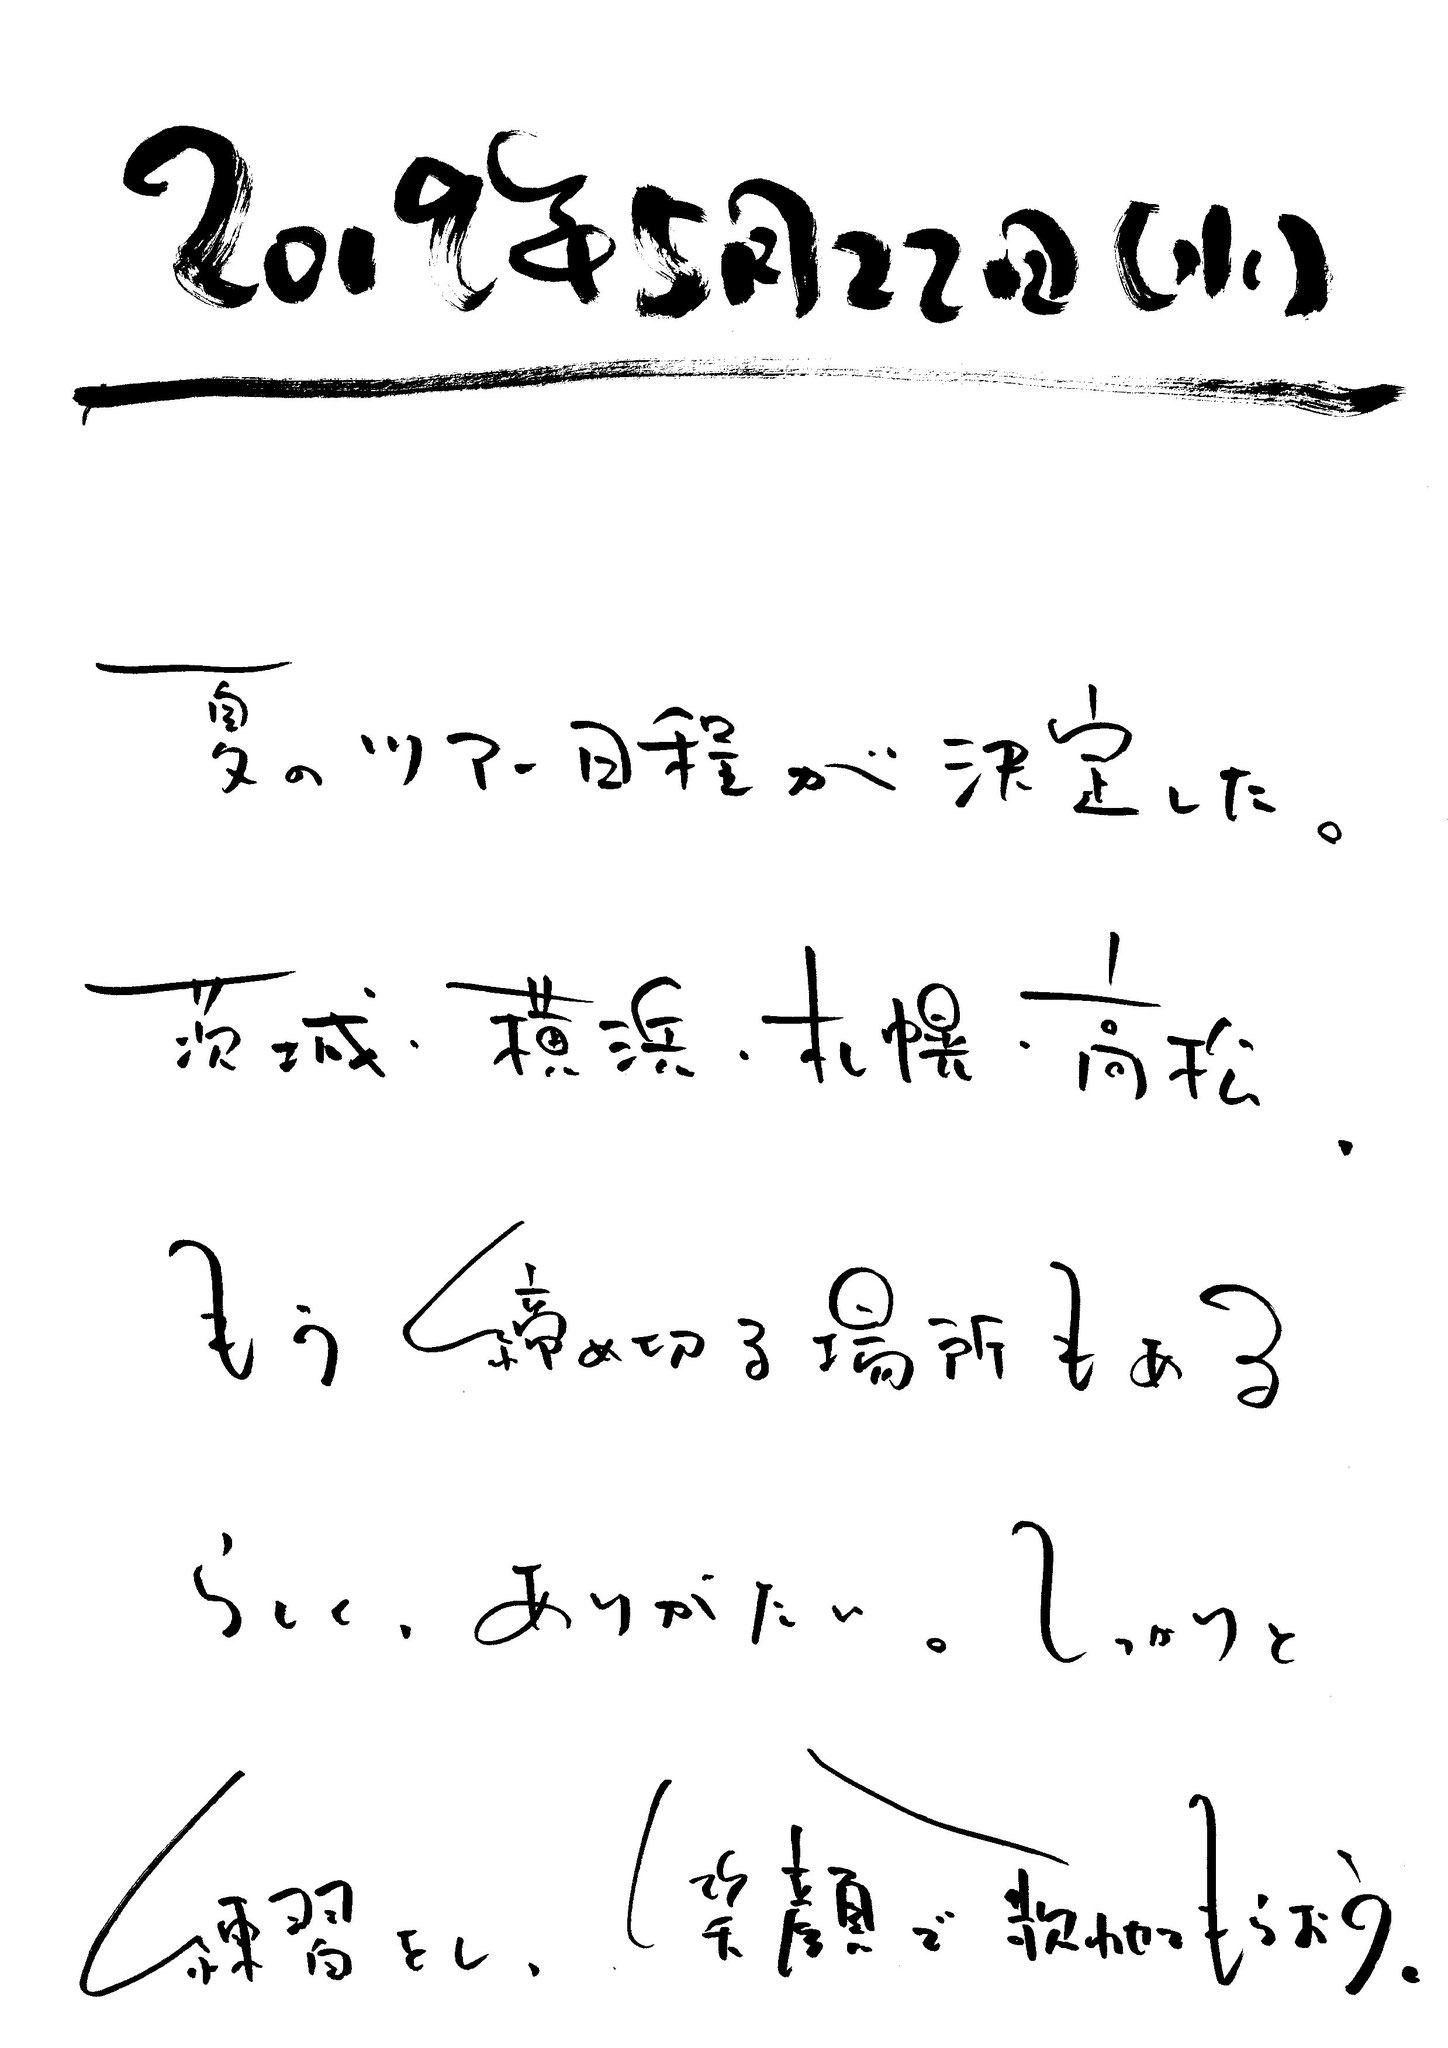 2019年5月22日(水)
夏のツアー日程が決定した。
茨城・横浜・札幌・高松、
もう締め切る場所もある
らしく、ありがたい。しっかりと
練習をし、笑顔で歌わせてもらおう。